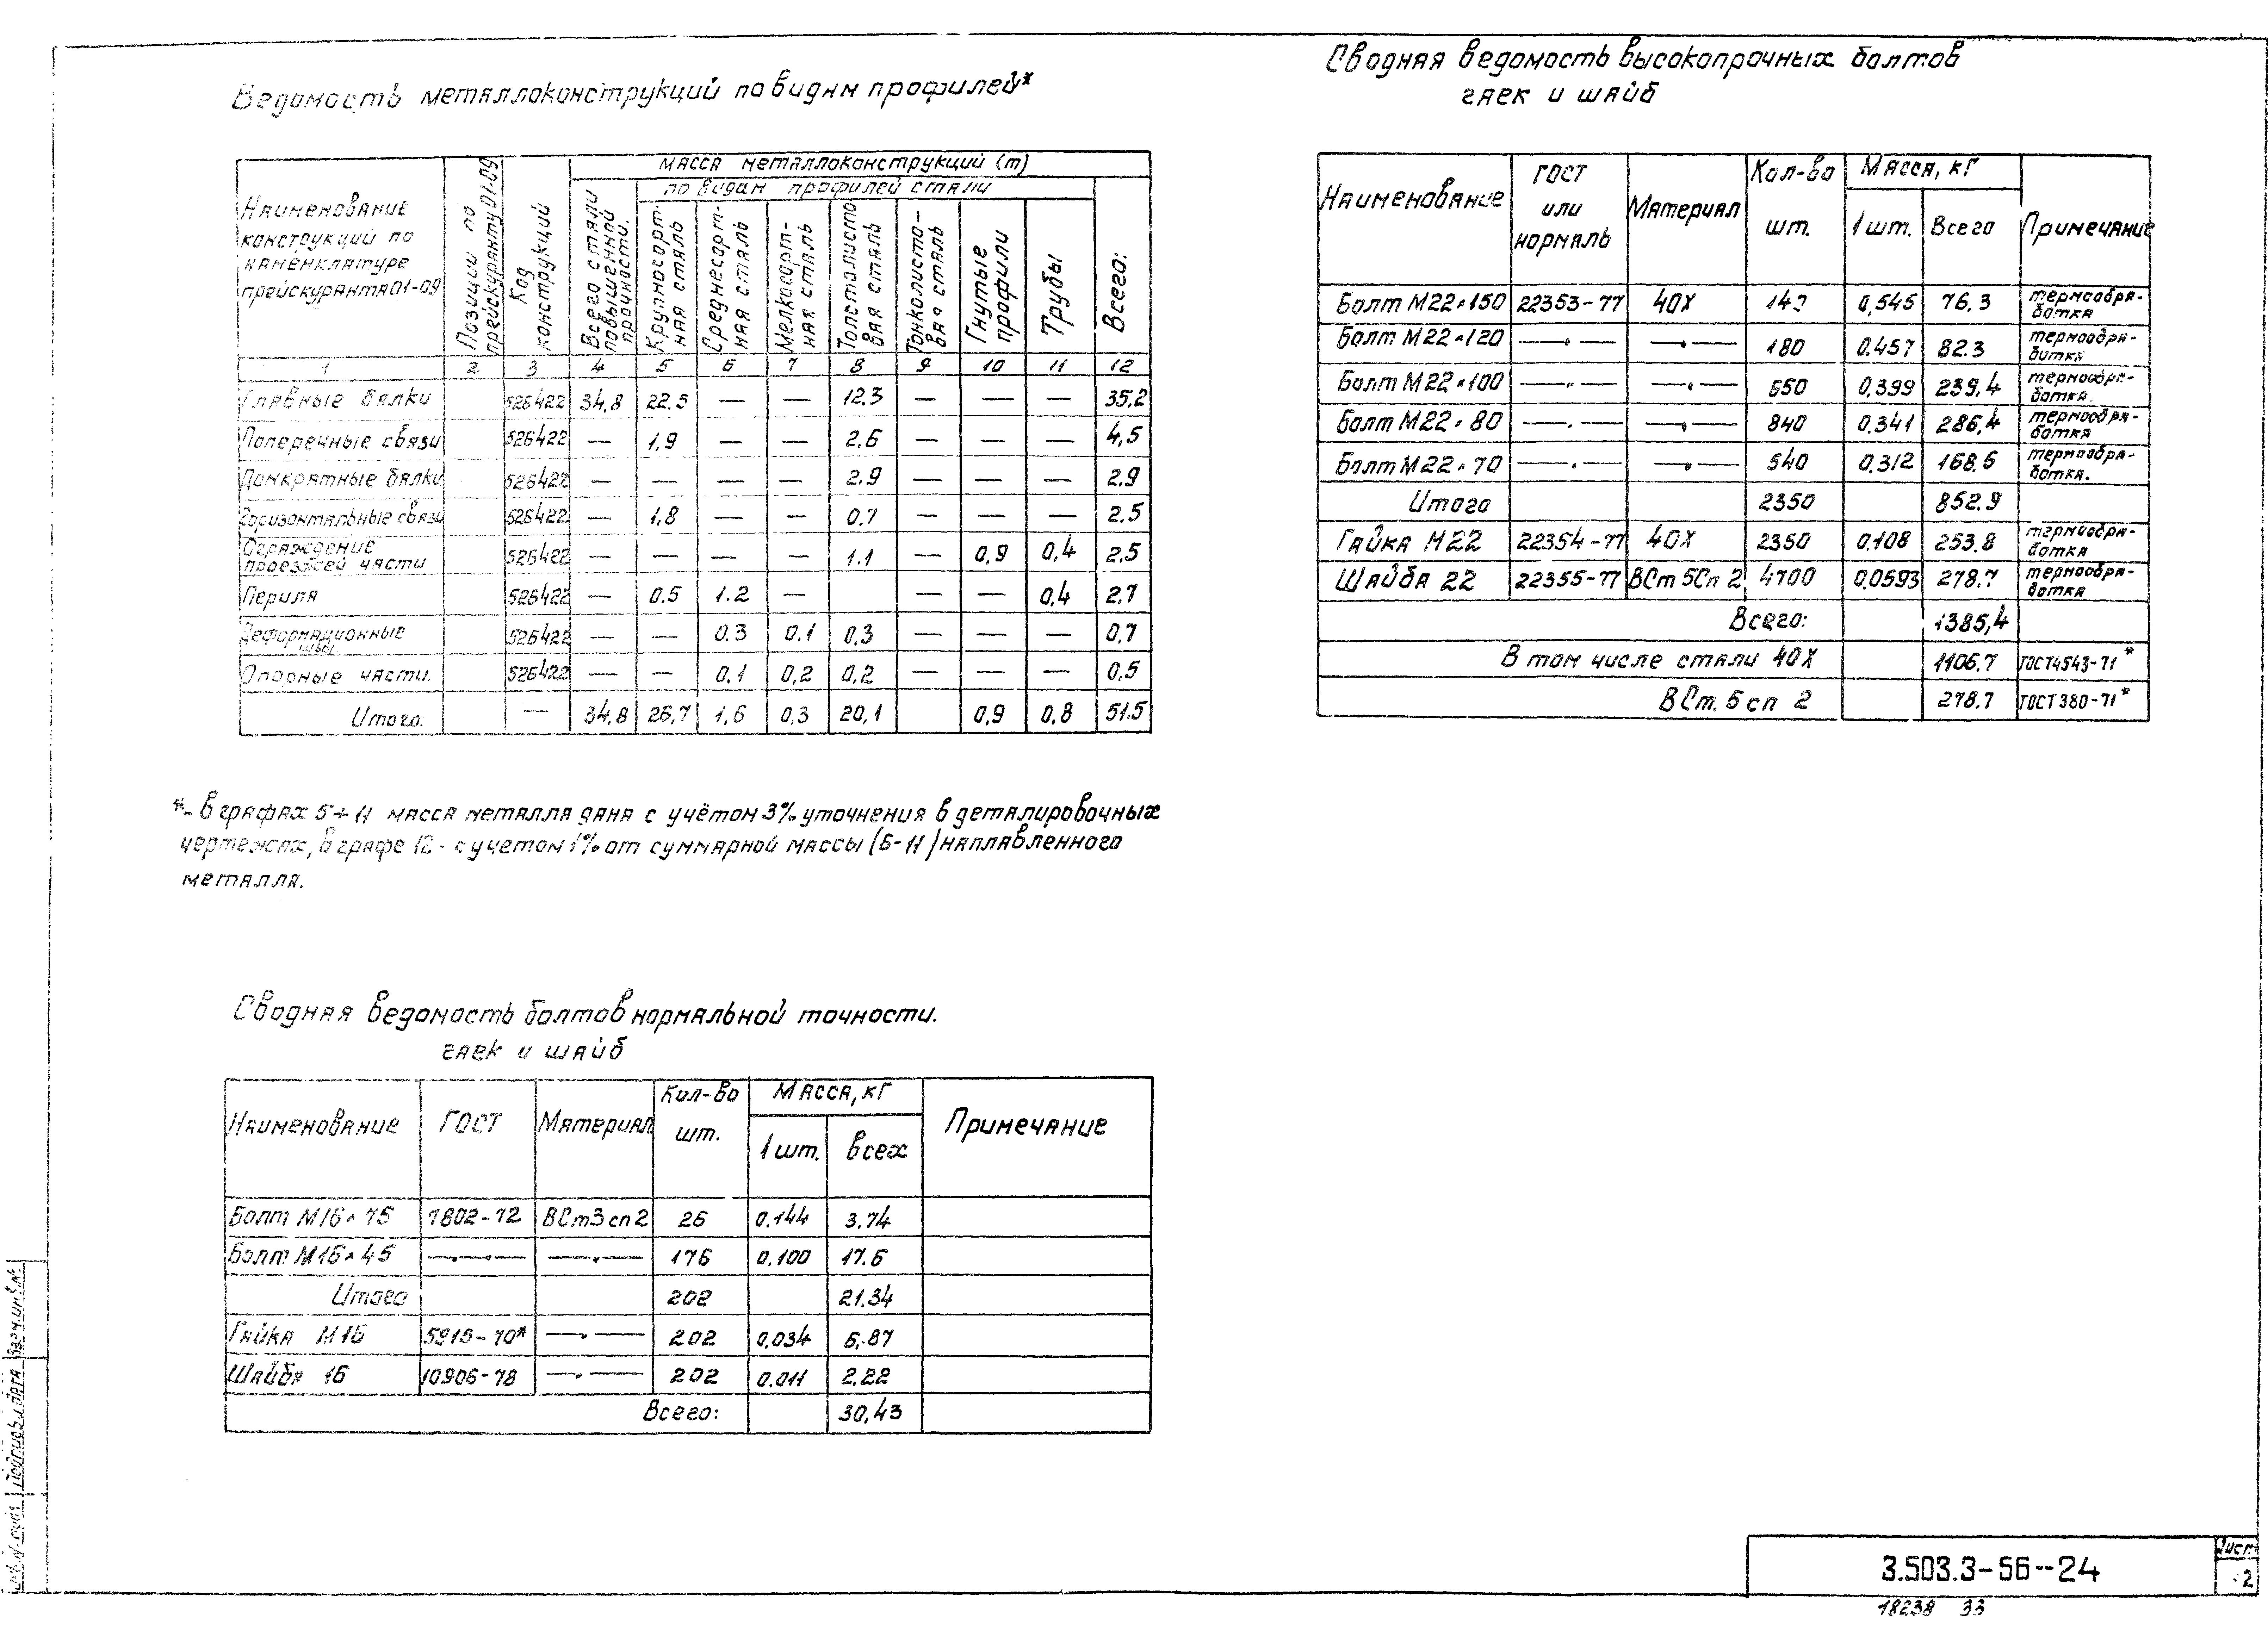 Ведомость металлоконструкций по видам профилей*
Наименование конструкций по наменклатуре прейскуранта 01-09 | Позиции по прейскуранту 01-09 | Код конструкций | масса металлоконструкций (т)
Всего стали повышенной прочности. | по видам профилей стали | Всего:
Крупносорт-ная сталь | Среднесорт-ная сталь | Мелкосорт-ная сталь | Толстолисто вая сталь | Тонколисто-вая сталь | Гнутые профили | Трубы
1 | 2 | 3 | 4 | 5 | 6 | 7 | 8 | 9 | 10 | 11 | 12
Главные балки | 526422 | 34,8 | 22,5 | — | — | 12.3 | — | — | — | 35,2
Поперечные связи | 526422 | — | 1,9 | — | — | 2.6 | — | — | — | 4,5
Домкратные балки | 526422 | — | — | — | — | 2.9 | — | — | — | 2,9
Горизонтальные связи | 526422 | — | 1,8 | — | — | 0.7 | — | — | — | 2.5
Ограждение проезжей части | 526422 | — | — | — | — | 1.1 | — | 0,9 | 0,4 | 2,5
Перила | 526422 | — | 0.5 | 1.2 | — | — | — | 0,4 | 2.7
Деформационные швы. | 526422 | — | — | 0.3 | 0,1 | 0,3 | — | — | — | 0,7
Опорные части. | 526422 | — | — | 0,1 | 0,2 | 0,2 | — | — | — | 0,5
Итого: | — | 34,8 | 26,7 | 1,6 | 0,3 | 20,1 | 0,9 | 0,8 | 51.5
*- в графах 5÷11 масса металла дана с учётом 3% уточнения в деталировочных
чертежах, в графе 12 - с учетом 1% от суммарной массы (5-11) наплавленного
металла.
Сводная ведомость болтов нормальной точности.
гаек и шайб
Наименование | ГОСТ | Материал | Кол-во шт. | Масса, кг | Примечание
1 шт. | всех
Болт М16×75 | 7802-72 | ВСт3сп2 | 26 | 0.144 | 3.74
Болт М16×45 | —„— | —„— | 176 | 0.100 | 17.6
Итого | 202 | 21.34
Гайка М16 | 5915-70* | —„— | 202 | 0,034 | 6,87
Шайба 16 | 10906-78 | —„— | 202 | 0.011 | 2,22
Всего: | 30,43
Сводная ведомость высокопрочных болтов
гаек и шайб
Наименование | ГОСТ или нормаль | Материал | Кол-во шт. | Масса, кг | Примечание
1 шт. | Всего
Болт М22×150 | 22353-77 | 40Х | 0,545 | 76,3 | термообра-ботка
Болт М22×120 | —„— | —„— | 180 | 0.457 | 82.3 | термообра-ботка
Болт М22×100 | —„— | —„— | 650 | 0,399 | 239,4 | термообра-ботка.
Болт М22×80 | —„— | —„— | 840 | 0.341 | 286,4 | термообра-ботка
Болт М22×70 | —„— | —„— | 540 | 0,312 | 168,5 | термообра-ботка.
Итого | 2350 | 852.9
Гайка М22 | 22354-77 | 40Х | 2350 | 0,108 | 253.8 | термообра-ботка
Шайба 22 | 22355-77 | ВСт5Сп2 | 4700 | 0,0593 | 278,7 | термообра-ботка
Всего: | 1385,4
В том числе стали 40Х | 1106,7 | ГОСТ4543-71*
ВСт.5сп 2 | 278.7 | ГОСТ380-71*
взам.инв.№
подпись и дата
3.503.3-56--24
Лист
2
18238 33